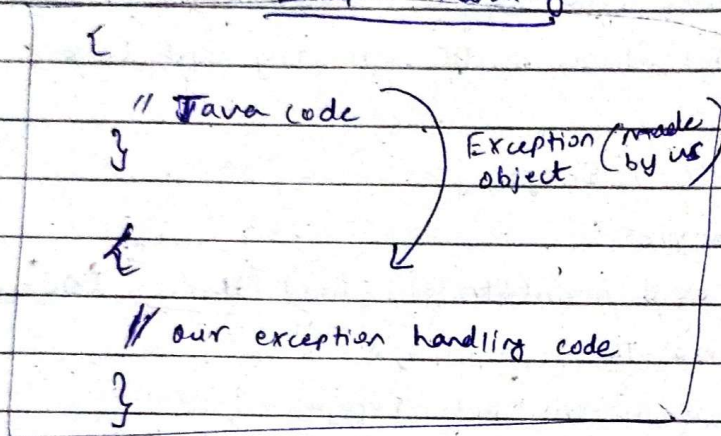 {
// Java code
}
Exception (made
object by us)
{
// our exception handling code
}